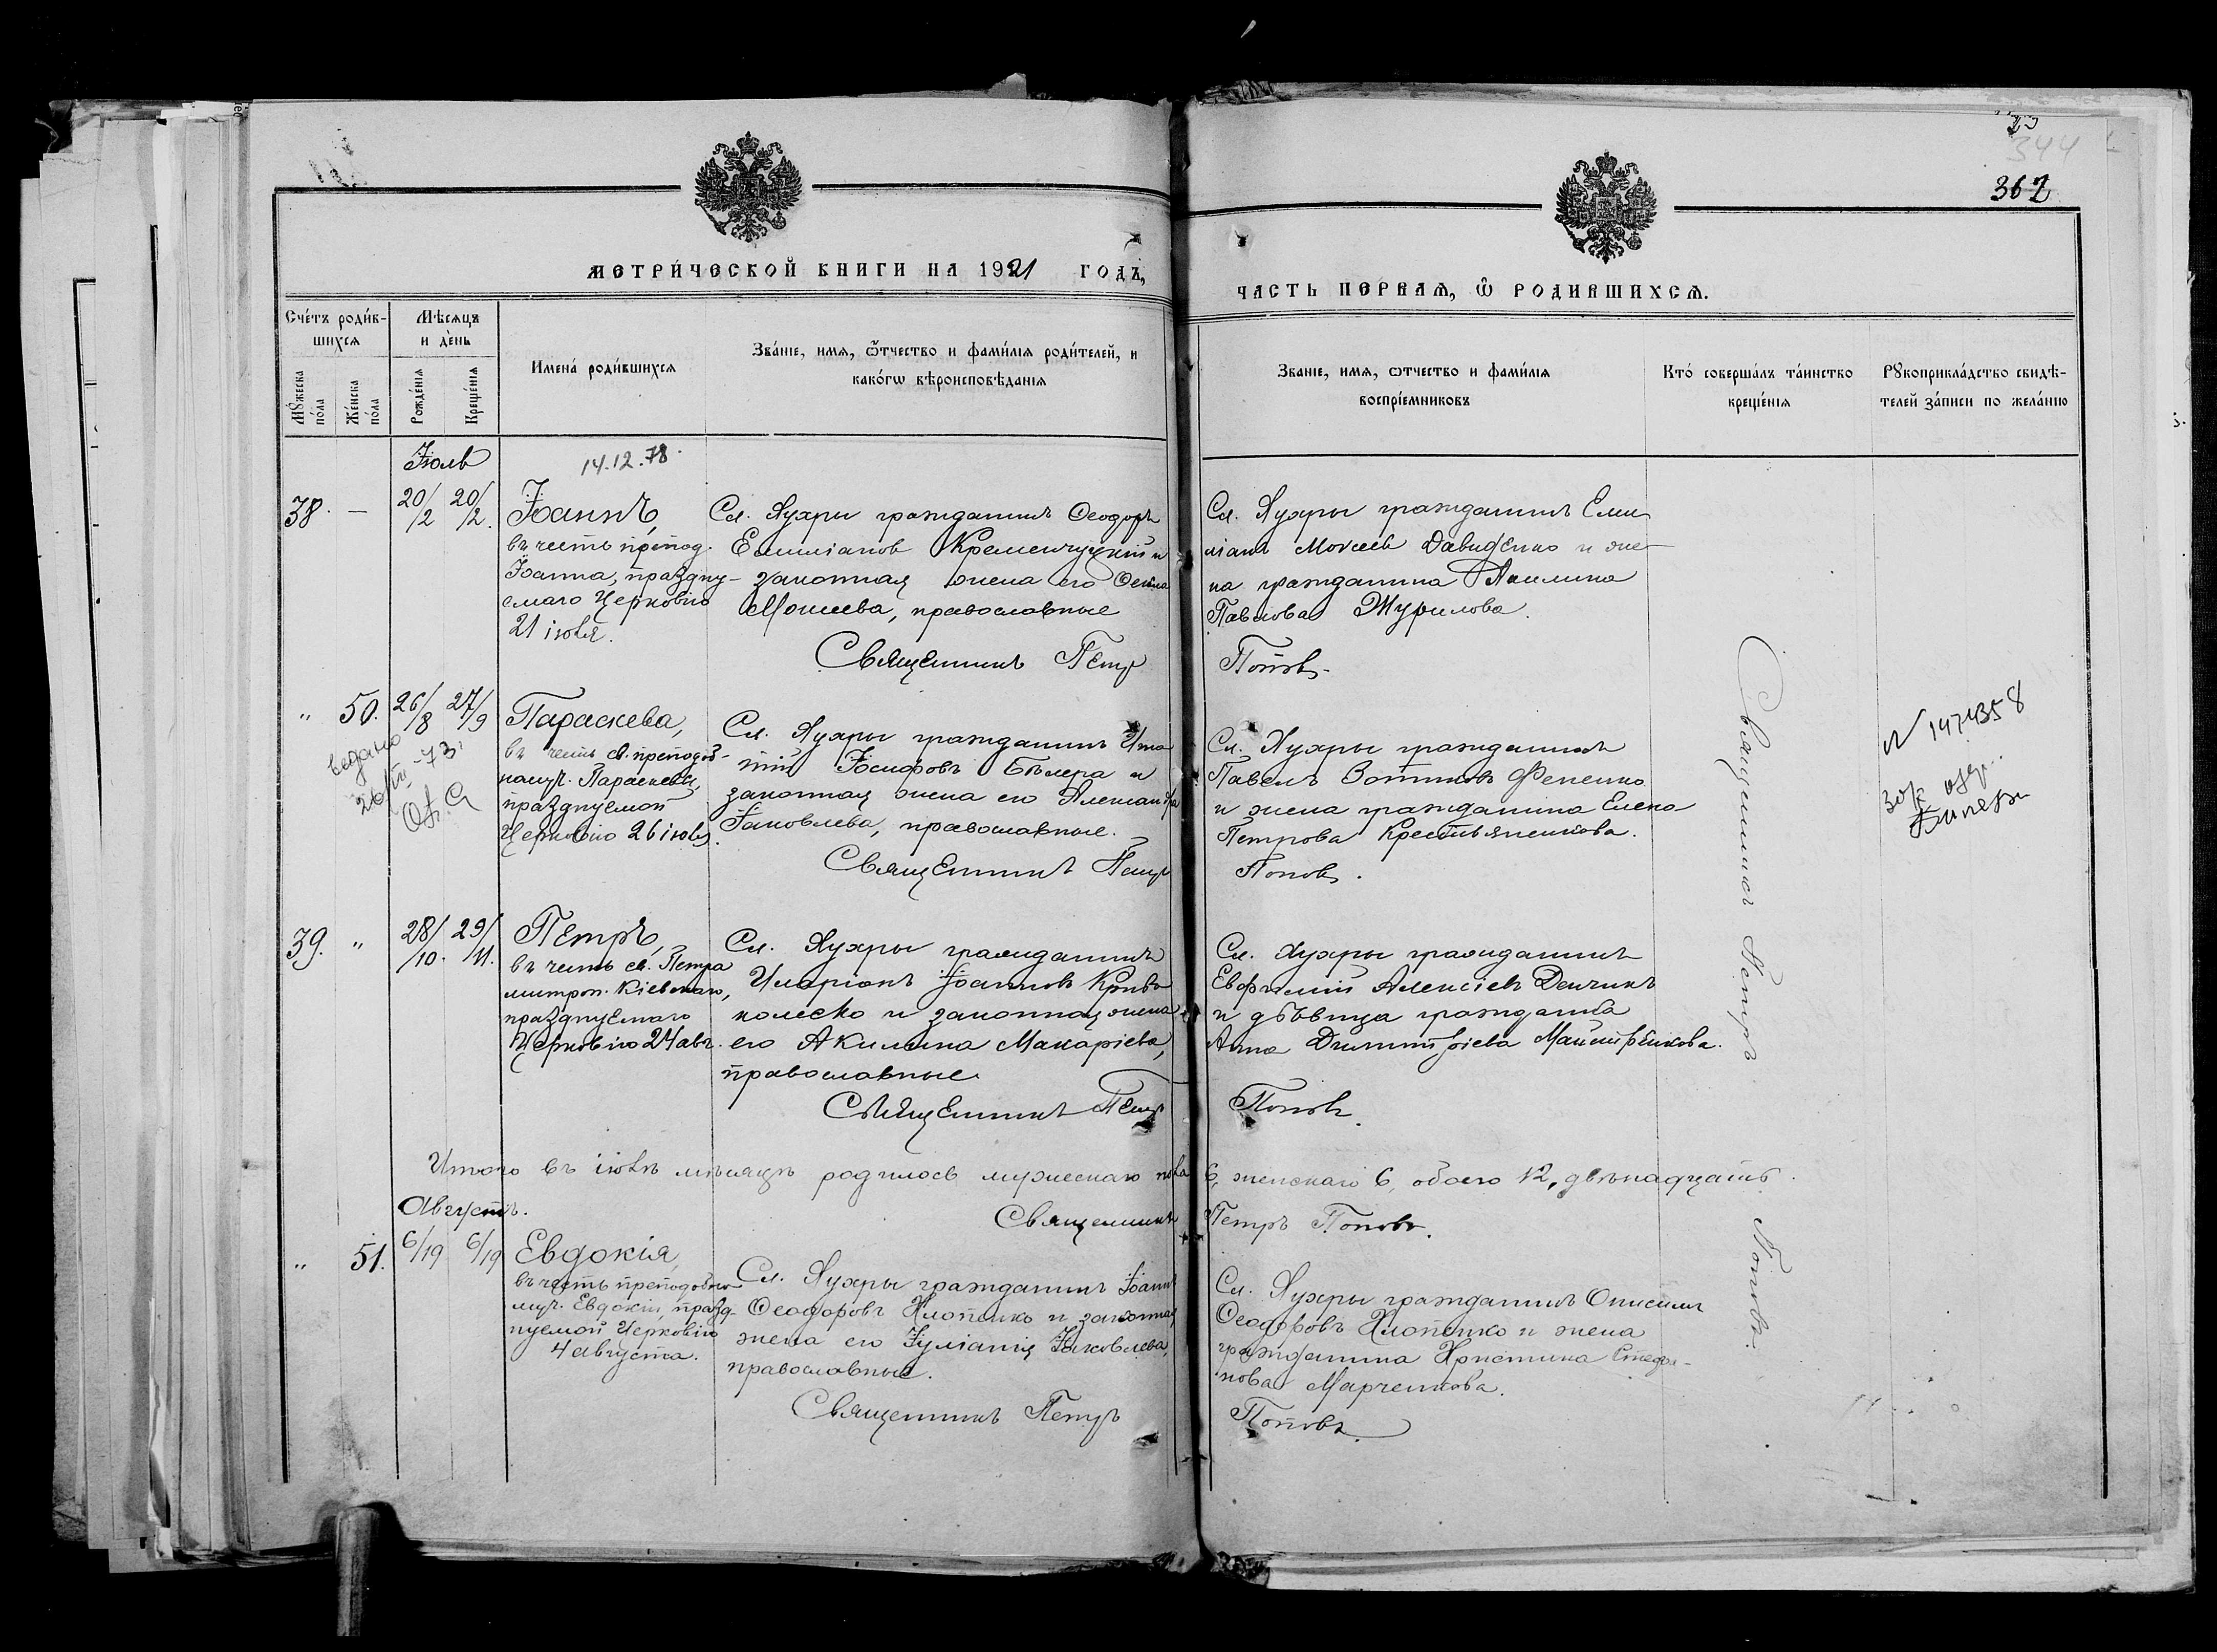 344
362
МЕТРИ́ЧЕСКОЙ КНИГИ НА 1921 ГОДЪ,
ЧАСТЬ ПЕРВАЯ, Ѡ РОДИВШИХСЯ.
Сче́тъ роди́в-
шихся
Му́жеска
по́ла
Же́нска
по́ла
Мѣсяцъ
и де́нь
Рожде́нія
Креще́нія
Имена́ роди́вшихся
Зва́ніе, имя, ѻ҆тчество и фами́лія роди́телей, и
како́гѡ вѣроисповѣ́данія
Званіе, имя, ѡтчество и фами́лія
воспріе́мниковъ
Кто́ соверша́лъ та́инство
креще́нія
Рꙋкоприкла́дство свидѣ-
телей за́писи по жела́нію
Іюль
14.12.78.
38. — 20/2 20/2.
Іоаннъ,
въ честь препод.
Іоанна, праздну-
емаго Церковію
21 іюля.
Сл. Аухры гражданинъ Ѳеодоръ
Емиліанов Кременчуцкій и
законная жена его Ѳекла
Моисеева, православные
Священникъ Петръ
Сл. Аухры гражданинъ Еми
ліанъ Моисеев Давиденко и же-
на гражданина Акилина
Павлова Журилова.
Поповъ.
" 50. 26/8 27/9
видано
26/VI-73
Параскева,
въ честь св. преподоб-
номуч. Параскевы,
празднуемой
Церковію 26 іюля.
Сл. Аухры гражданинъ Игна
тій Іосифовъ Бѣлера и
законная жена его Александра
Іаковлева, православные.
Священникъ Петръ
Сл. Аухры гражданинъ
Павелъ Фененко
и жена гражданина Елена
Петрова Крестьяненкова.
Поповъ.
N 1474358
39. " 28/10. 29/11.
Петръ,
въ честь св. Петра
митроп. Кіевскаго,
празднуемаго
Церковію 24 авг.
Сл. Аухры гражданинъ
Иларіонъ Іоанновъ Криво
колеско и законная жена
его Акилина Макаріева,
православные
Священникъ Петръ
Сл. Аухры гражданинъ
Евфимій Алексіевъ Демчикъ
и дѣвица гражданка
Анна Димитріева Маистренкова.
Поповъ.
Итого въ іюлѣ мѣсяцѣ родилось мужескаго пола 6, женскаго 6, обоего 12, двѣнадцать.
Священникъ Петръ Поповъ.
Августъ.
" 51. 6/19 6/19
Евдокія,
въ честь преподобно
муч. Евдокіи, празд-
нуемой Церковію
4 августа.
Сл. Аухры гражданинъ Іоаннъ
Ѳеодоровъ Хлопенко и законная
жена его Іуліанія Іаковлева,
православные.
Священникъ Петръ
Сл. Аухры гражданинъ Онисимъ
Ѳеодоровъ Хлопенко и жена
гражданина Христина Стефа-
нова Марченкова.
Поповъ.
Священникъ Петръ Поповъ.